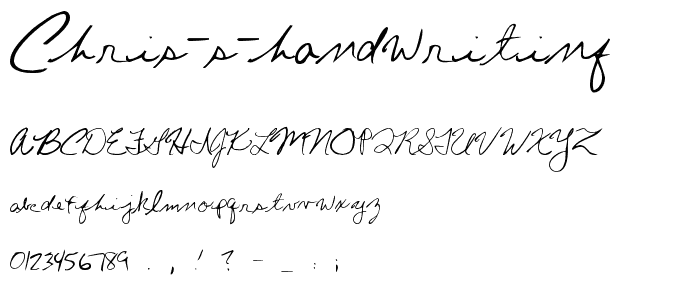 Chris-s-handwriting
ABCDEFGHIJKLMNOPQRSTUVWXYZ
abcdefghijklmnopqrstuvwxyz
0123456789 . , ! ? - _ : ;